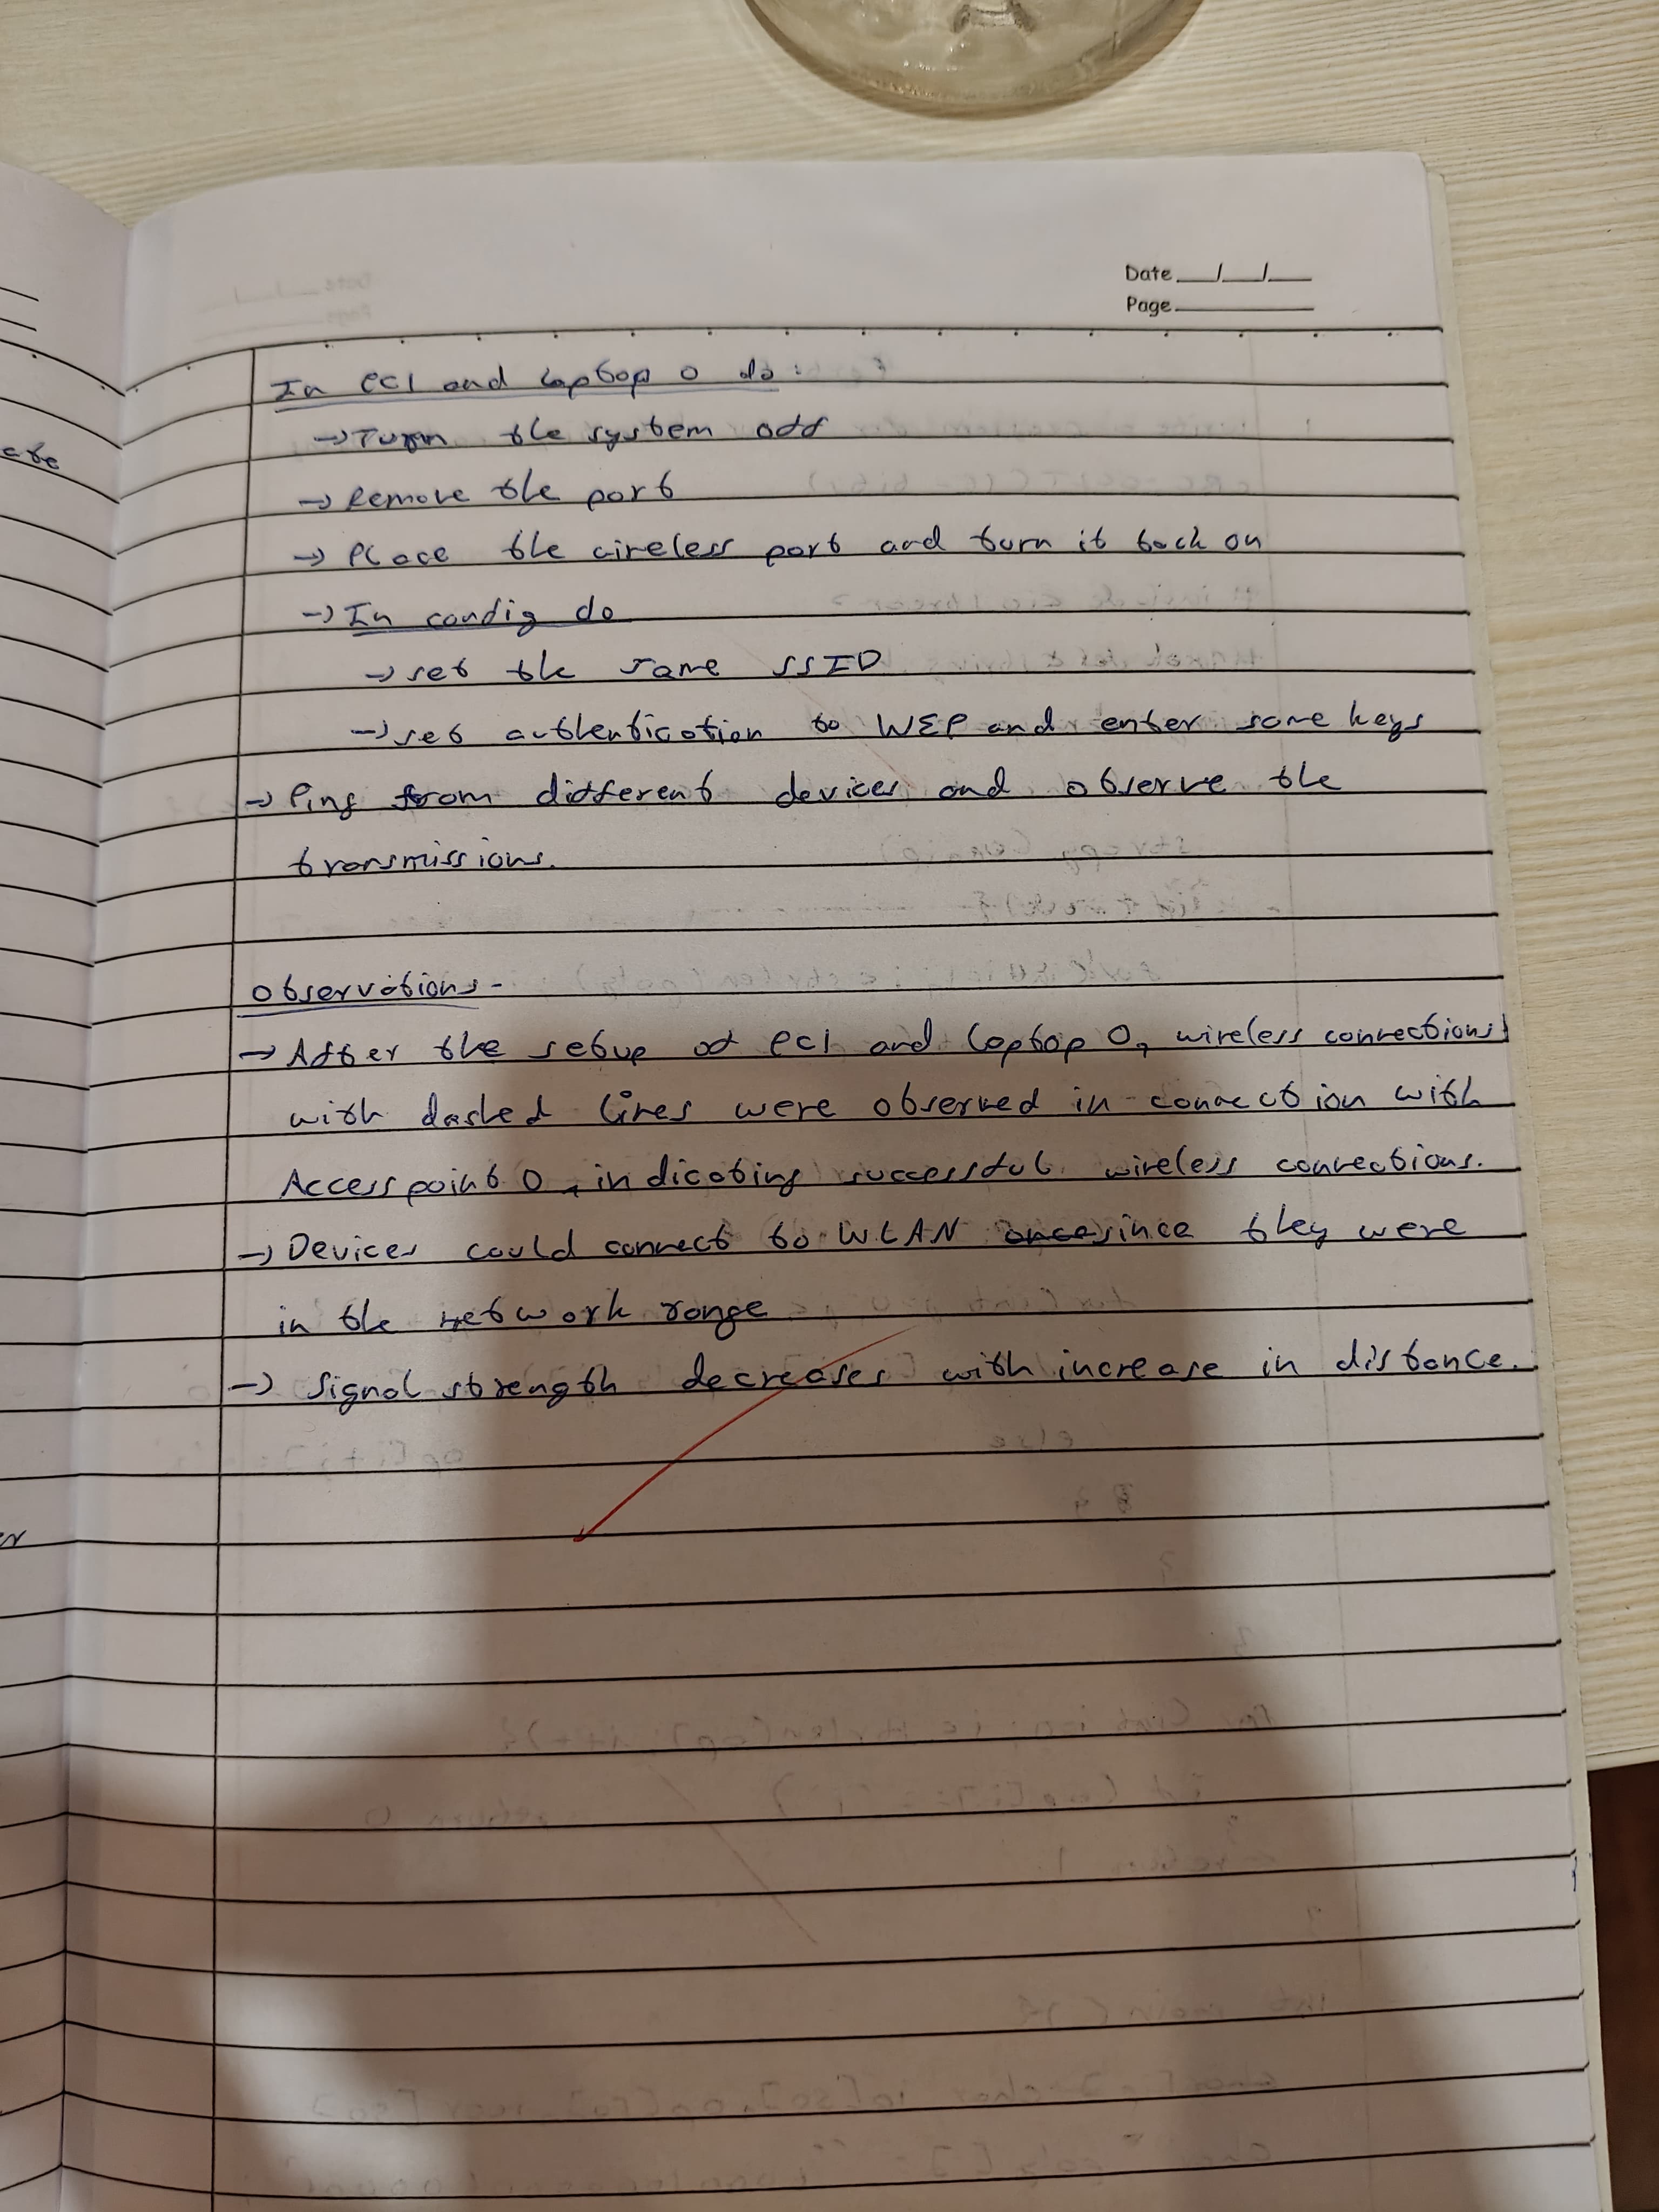 Date __/__/__
Page
In PC1 and laptop 0 do:
→ Turn the system off
→ Remove the port
→ Place the wireless port and turn it back on
→ In config do
→ set the same SSID
→ set authentication to WEP and enter some keys
→ Ping from different devices and observe the
transmissions.
Observations -
→ After the setup of PC1 and laptop 0, wireless connections
with dashed lines were observed in connection with
Access point 0, indicating successful wireless connections.
→ Devices could connect to WLAN since they were
in the network range
→ Signal strength decreases with increase in distance.